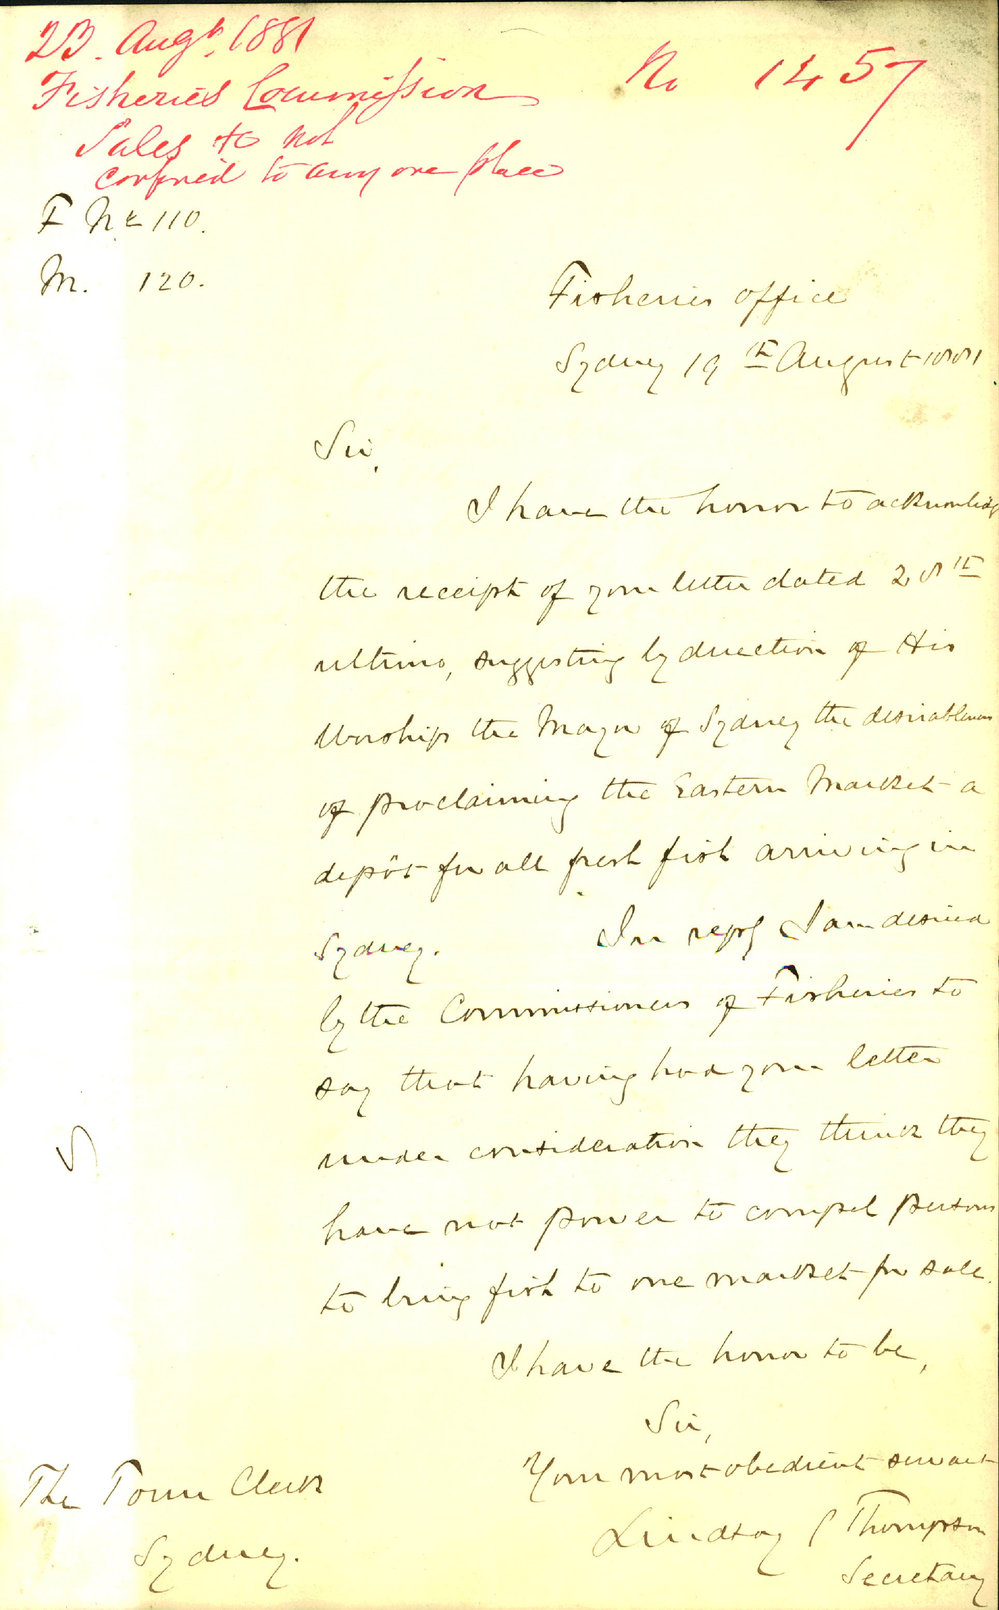 23. Augt. 1881
Fisheries Commission No 1457
Sales to not
confined to any one place
F No 110.
M. 120.
Fisheries Office
Sydney 19th August 1881.
Sir,
I have the honor to acknowledge
the receipt of your letter dated 28th
ultimo, suggesting by direction of His
Worship the Mayor of Sydney the desirableness
of proclaiming the Eastern Market a
depôt for all fresh fish arriving in
Sydney. In reply I am desired
by the Commissioners of Fisheries to
say that having had your letter
under consideration they think they
have not power to compel persons
to bring fish to one market for sale.
I have the honor to be,
Sir,
Your most obedient servant
Lindsay G Thompson
Secretary
The Town Clerk
Sydney.